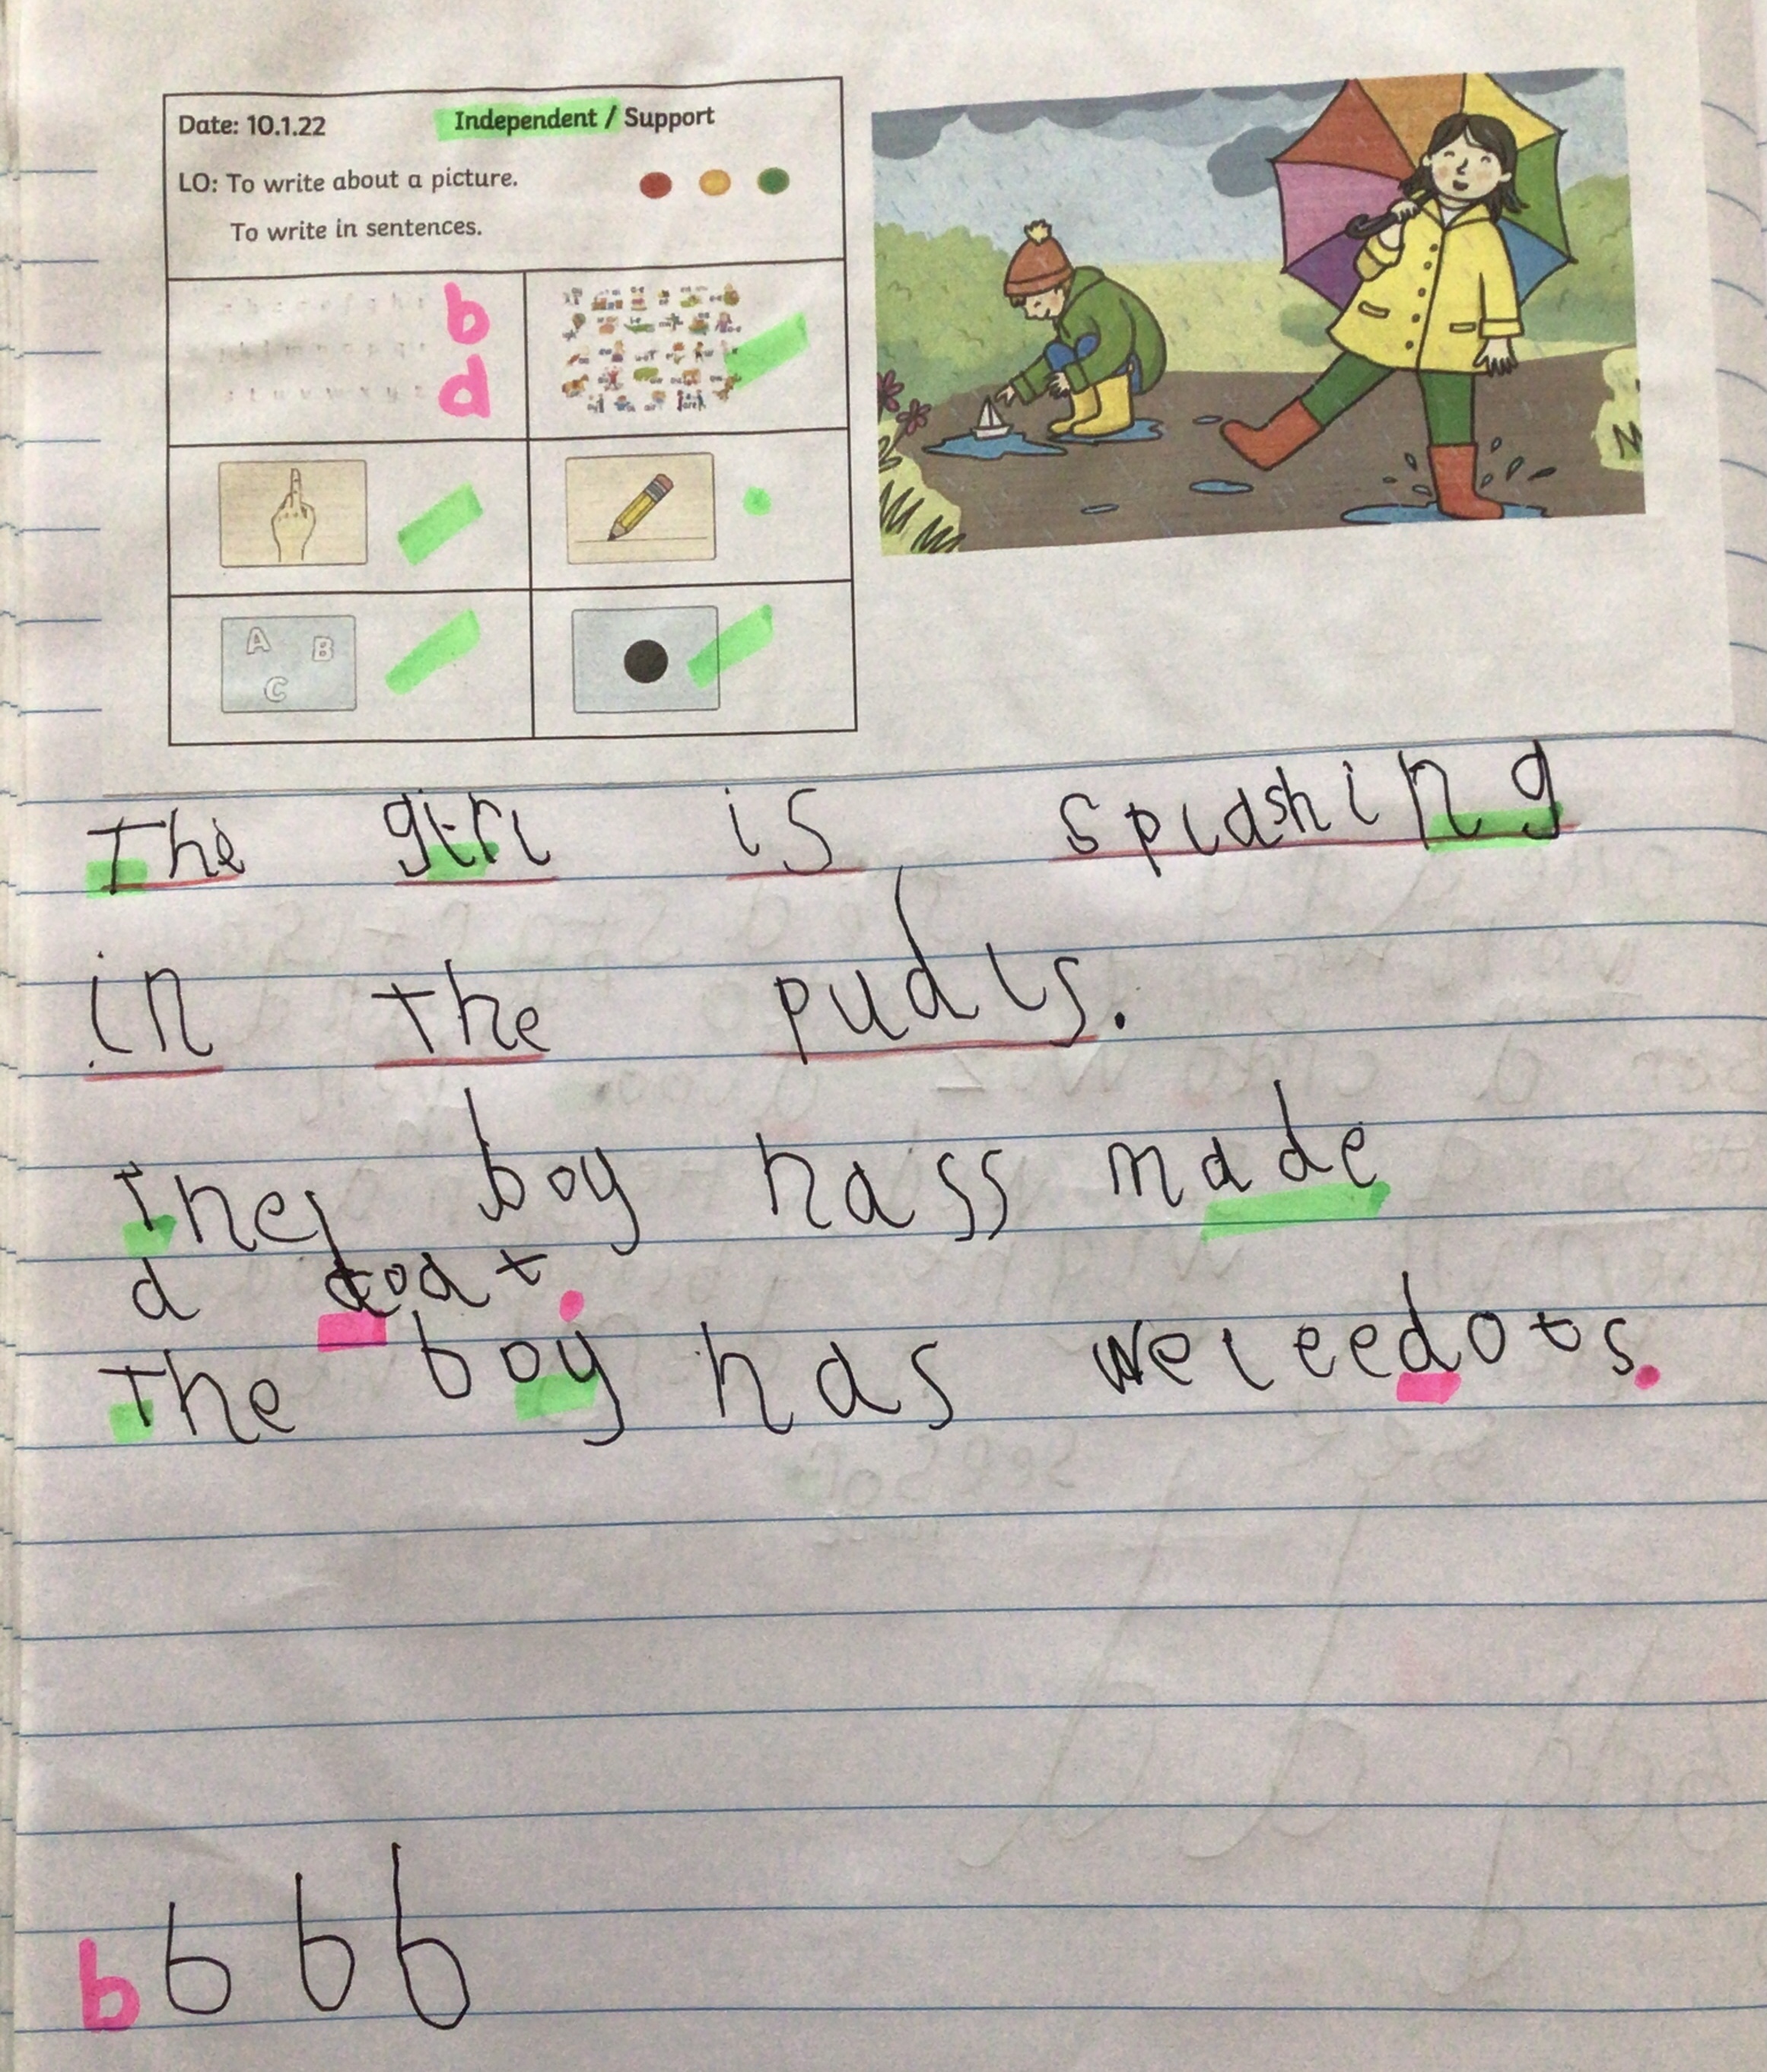 Date: 10.1.22 Independent / Support
LO: To write about a picture.
To write in sentences.
b
d
A B
C
The girl is splashing
in the pudls.
They boy hass made
a doat.
The boy has weleedots.
b b b b